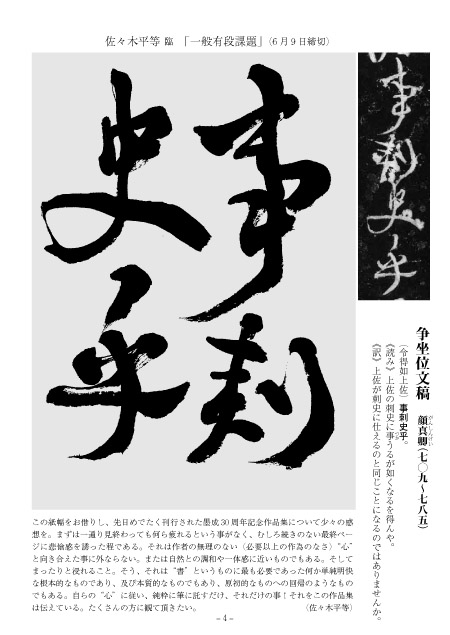 佐々木平等 臨 「一般有段課題」(6月9日締切)
事刺
史乎
事刺史乎
争坐位文稿 顔真卿(七〇九〜七八五)
がんしんけい
(令得如上佐) 事刺史乎。
《読み》上佐の刺史に事うるが如くなるを得んや。
つか
《訳》上佐が刺史に仕えるのと同じことになるのではありませんか。
この紙幅をお借りし、先日めでたく刊行された墨成30周年記念作品集について少々の感
想を。まずは一通り見終わっても何ら疲れるという事がなく、むしろ続きのない最終ペー
ジに悲愴感を誘った程である。それは作者の無理のない（必要以上の作為のなさ）“心”
と向き合えた事に外ならない。または自然との調和や一体感に近いものでもある。そして
まったりと浸れること。そう、それは“書”というものに最も必要であった何か単純明快
な根本的なものであり、及び本質的なものでもあり、原初的なものへの回帰のようなもの
でもある。自らの“心”に従い、純粋に筆に託すだけ、それだけの事！それをこの作品集
は伝えている。たくさんの方に観て頂きたい。 （佐々木平等）
– 4 –